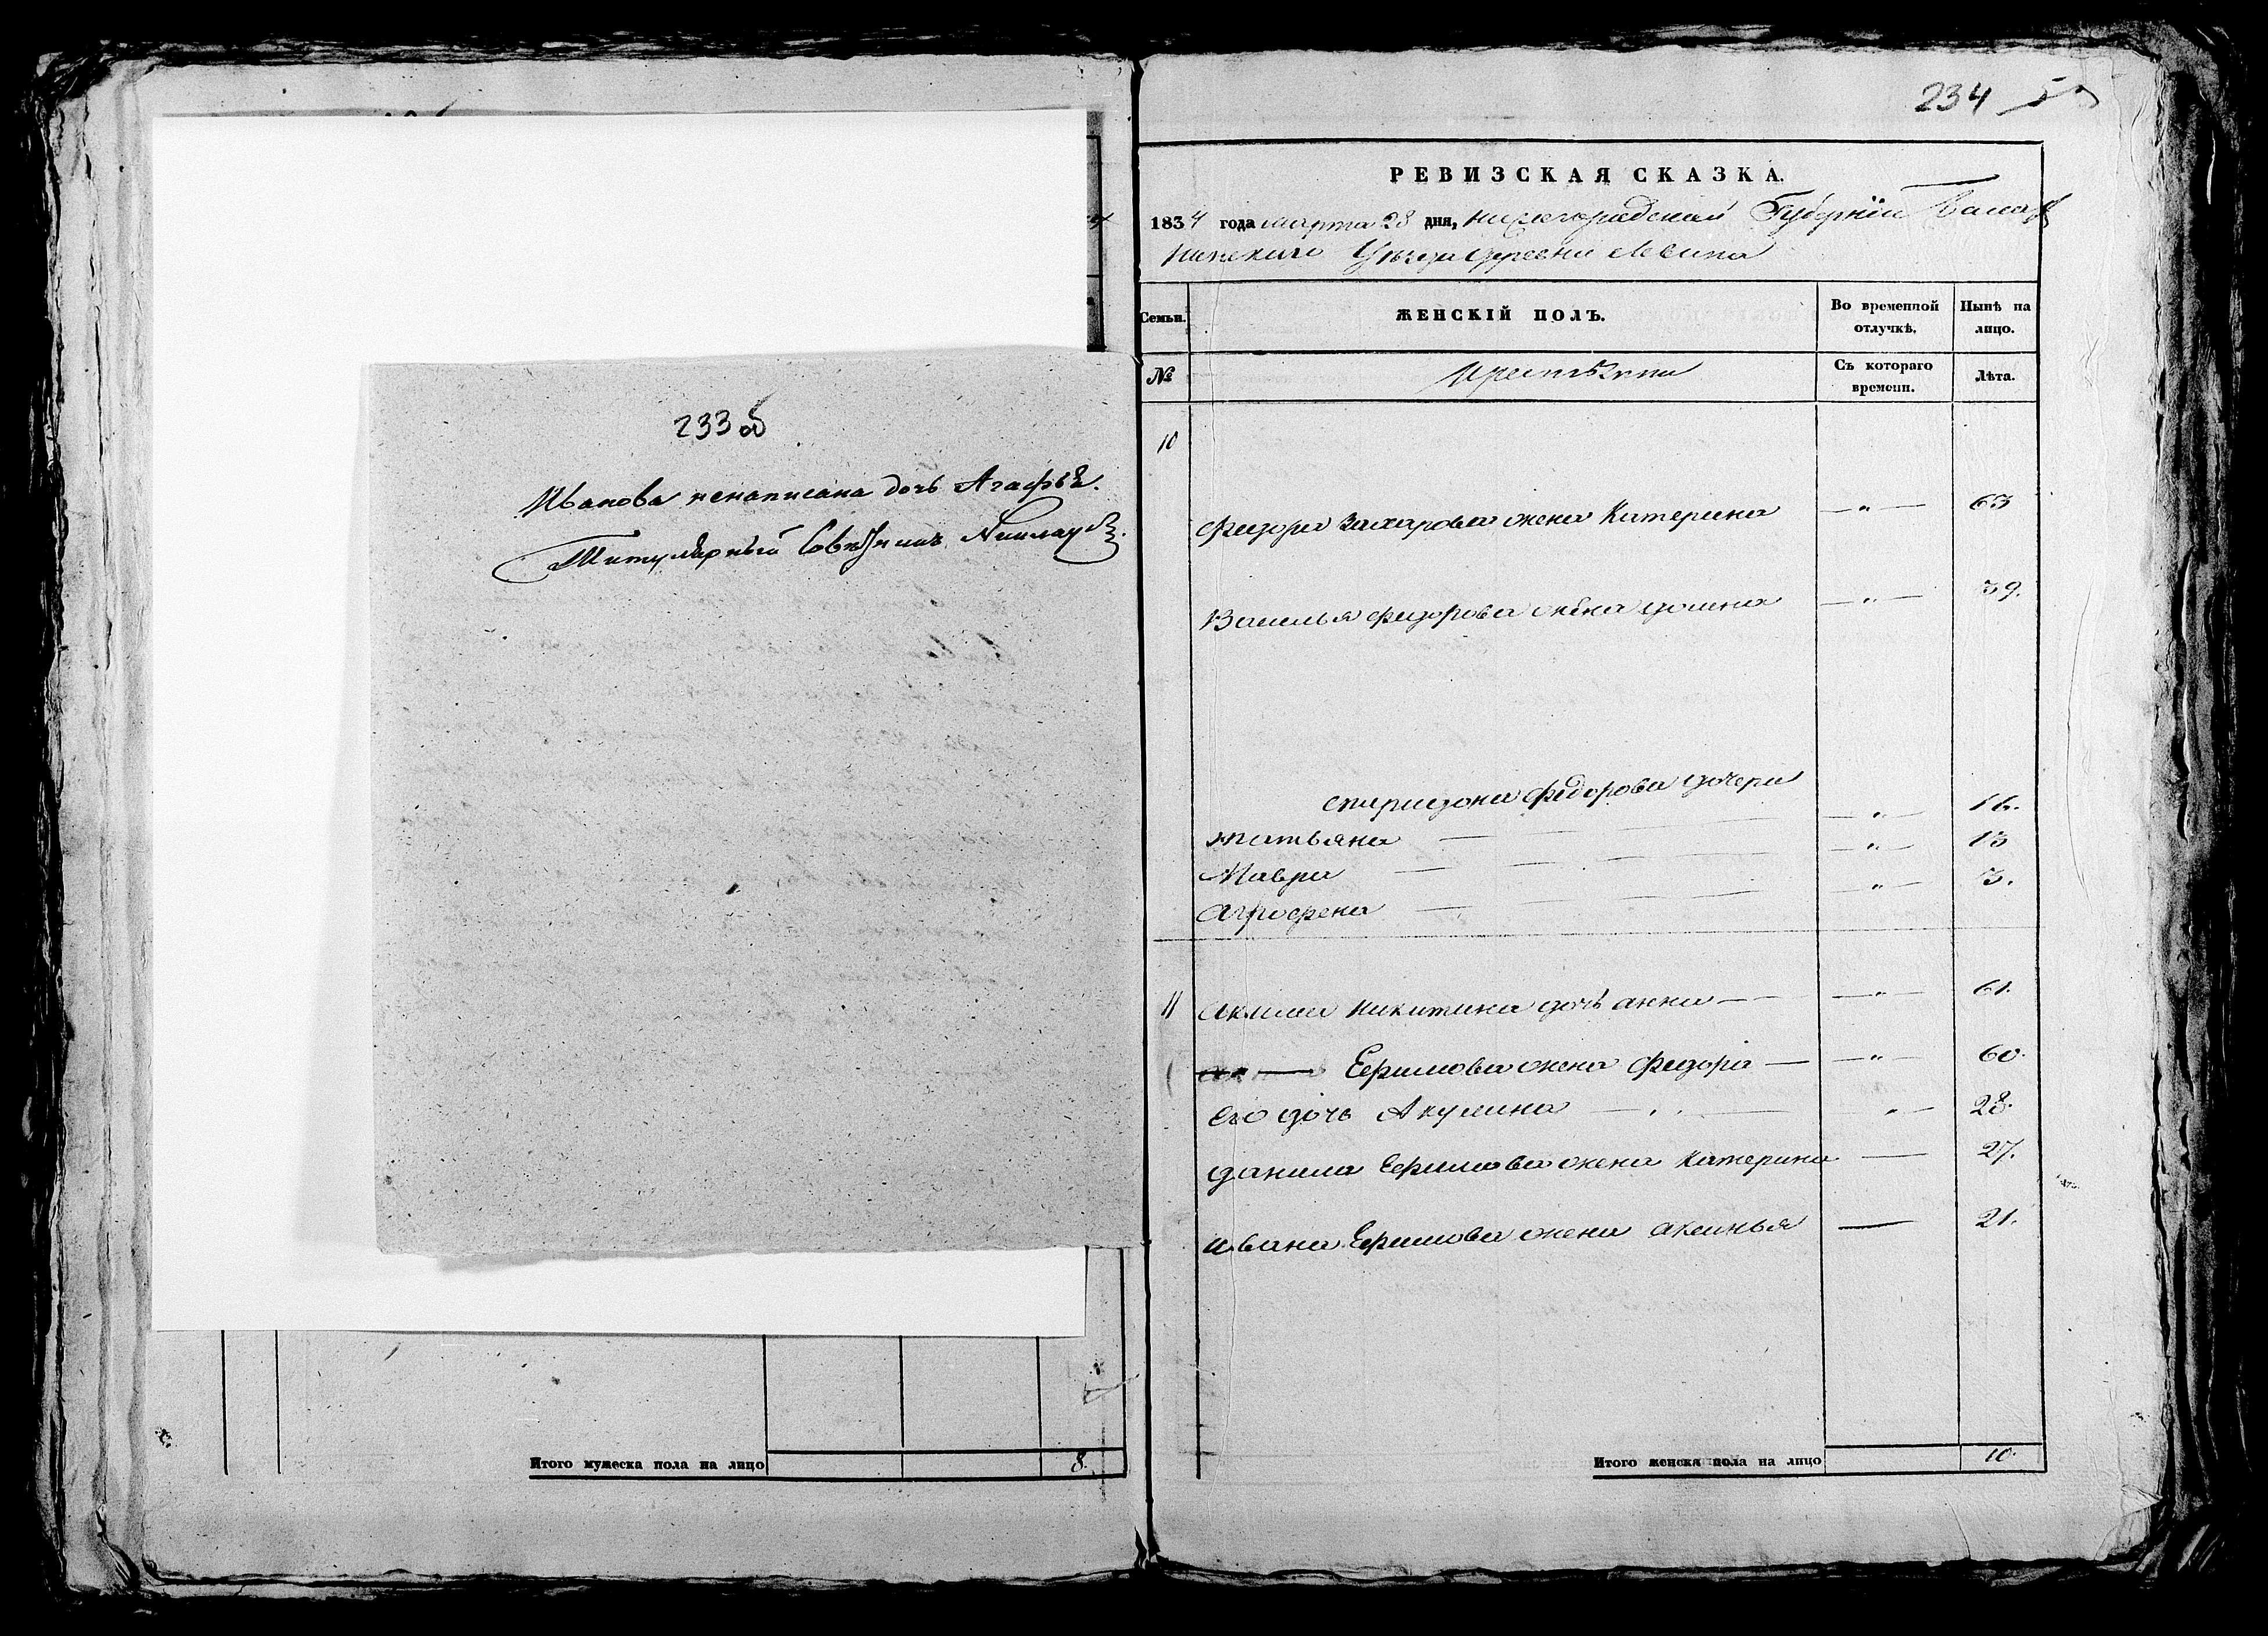 233 об
Иванова ненаписана дочь Агафья.
Титулярный Советникъ
Итого мужеска пола на лицо 8.
234
РЕВИЗСКАЯ СКАЗКА.
1834 года марта 28 дня, нижегородской Губернiи Балах
нинскаго Уѣзда деревни
Семьи. ЖЕНСКІЙ ПОЛЪ. Во временной отлучкѣ. Нынѣ на лицо.
№ Съ котораго времени. Лѣта.
10
Федора Захарова жена Катерина — „ — 63
Василья Федорова жена домна — „ — 39.
спиридона федорова дочери
татьяна — „ — 16.
Мавра — „ — 13
Агрофена — „ — 3.
11 акима никитина дочь анна — „ — 61.
Ефимова жена федора — — „ — 60.
его дочь Акулина — „ — 28.
данила Ефимова жена катерина — 27.
ивана Ефимова жена аксинья — 21.
Итого женска пола на лицо 10.